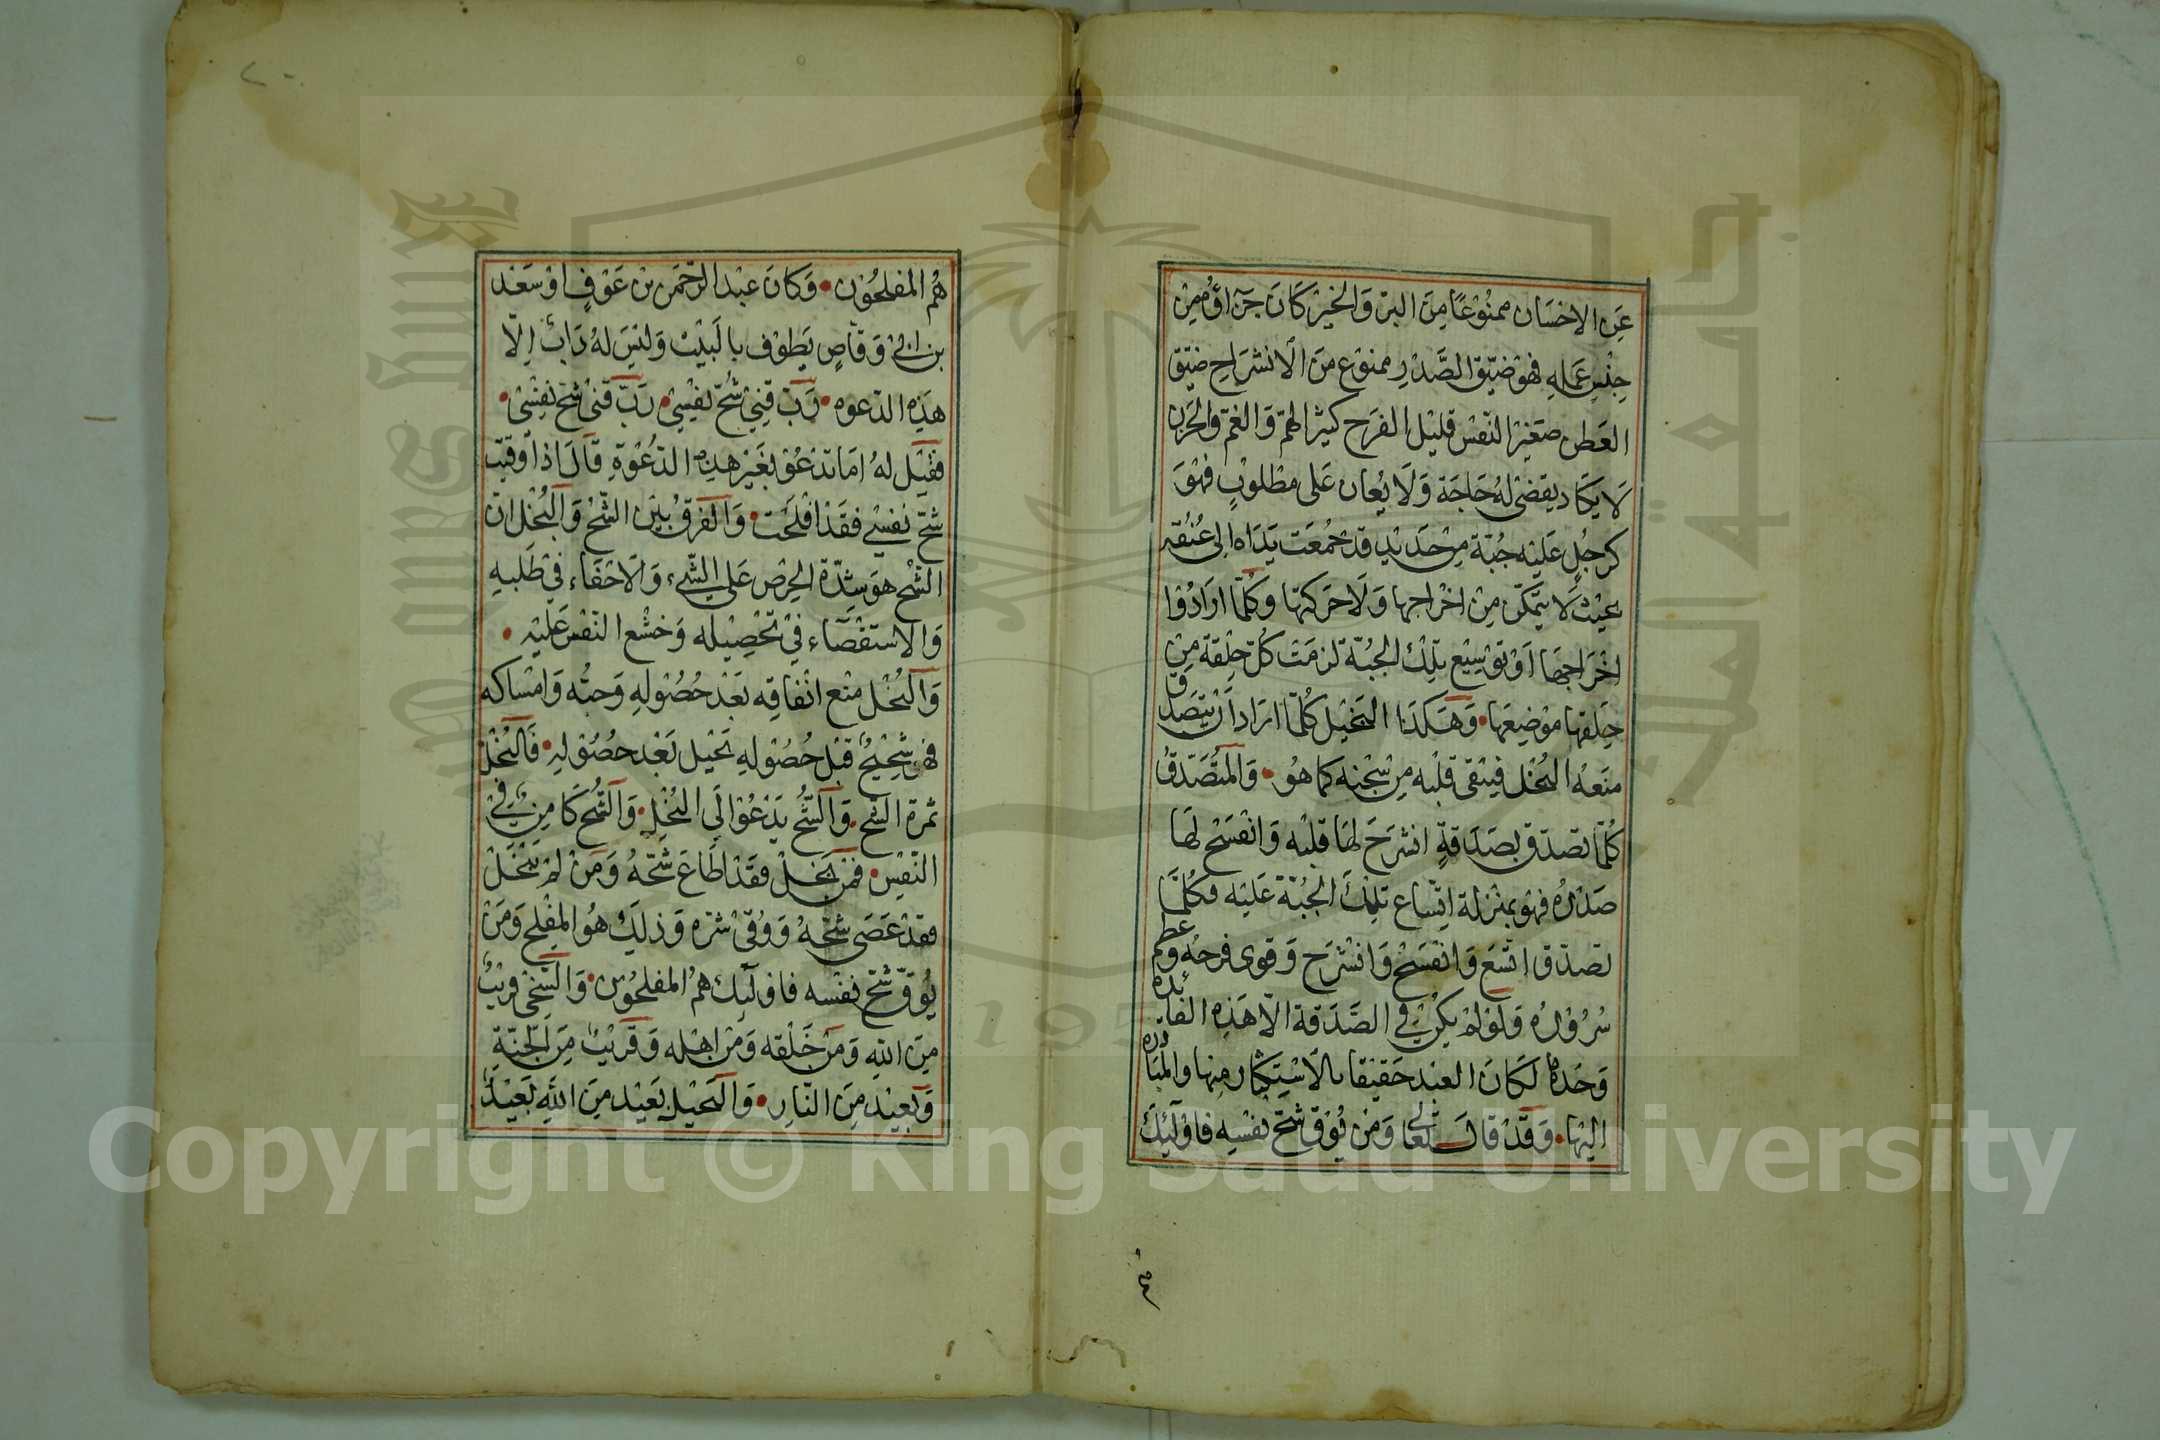 عَنِ الاحْسَان ممنُوْعًا مِنَ البرّ وَالخيْر كَانَ جَزَاؤُه مِنْ
جِنْسِ عَمَلِهِ فهوْ ضيّق الصَّدْرِ ممنوْع مِنَ الانْشرَاحِ ضيّق
العَطن صَغيْر النّفْس قليْل الفرَح كثيْر الهمّ وَالغمّ وَالحَزن
لَا يكَاد يقضىٰ لهُ حَاجَة وَلَا يُعان عَلى مطْلوْبٍ فهْوَ
كرجُلٍ عَليْه جُبّة مِنْ حَديْدٍ قدْ جُمعَت يَدَاه الى عُنُقه
بحيْث لَا يتمكّن مِنْ اخْرَاجهَا وَلَا حَركتهَا وَكُلّمَا ارَادُوْا
اخْرَاجهَا اوْ توْسيْع تلْك الجبّة لزمَتْ كُلّ حلْقة مِنْ
حلقهَا موْضعهَا وَهَكذَا البَخيْل كُلّمَا ارَادَ انْ يتصَدّق
منَعهُ البُخْل فيبْقى قلْبه مِنْ سِجْنه كما هُو وَالمتُصَدّقُ
كُلّمَا تصَدّق بصَدَقةٍ انشرَحَ لهَا قلبْه وَانْفسَحَ لهَا
صَدْرُه فهْو بمنْزلة اتّسَاع تلْكَ الجُبّة عَليْه فكُلّمَا
تصَدّق اتّسَعَ وَانفسَحَ وَانشْرحَ وَقوى فرحُه وَعظم
سُرُوْرُه وَلوْ لمْ يكُنْ في الصَّدَقة الّا هَذِه الفَائده
وَحدَهَا لكَانَ العبْد حَقيْقا بالاسْتِكثار مِنها وَالمبَادره
اليْها وَقَدْ قالَ تعَالى وَمَنْ يُوْق شحّ نفسْهِ فاوْلَئِكَ
هُم المفلحُوْن وَكانَ عبْد الرّحْمَن بْن عَوْفٍ اوْ سَعْد
بن ابي وَقاصٍ يَطوْف بالبَيْتِ وَليْسَ لهُ دَابٌ الّا
هَذِه الدّعوه رَبّ قِنِي شُحّ نفْسِيْ رَبّ قنِي شحّ نفِسْي
فقيْل لهُ امَا تدْعُوْ بغَيْر هذِه الدّعْوَةِ قَالَ اذَا وُقيْت
شحّ نفْسي فقَدْ افْلَحت وَالفرْقُ بيْن الشّحّ وَالبُخْل انّ
الشّح هوَ شدّة الحِرْص عَلى الشّيْء وَالاحْفَاء فيْ طَلَبهِ
وَالاسْتقْصَاء فيْ تحْصِيْلهِ وَخشْع النّفْسَ عَليْه
وَالبُخْل منْع انْفاقِه بعْد حُصُوْلهِ وَحبّه وَامْسَاكه
فهوَ شحِيْحٌ قبْل حُصُوْلهِ بَخيْل بَعْد حصُوْلهِ فَالبُخْل
ثمرَة الشّح وَالشّحُ يَدْعُوْ الَى البُخْلِ وَالشّح كَامِنٌ فيْ
النّفْس فمَنْ بَخِلْ فقَدْ اطَاعَ شحّهُ وَمَنْ لمْ يَبْخَلْ
فقدْ عَصَى شحّهُ وَوُقيْ شرّه وَذلِكَ هُو المفْلح وَمَنْ
يُوْقَ شحّ نفْسه فاوْلَئِكَ همُ المفلحُوْن وَالسّخيْ قرِيْبٌ
مِنَ اللهِ وَمَن خَلْقه وَمِنْ اهْله وَقَرِيْبٌ مِنَ الجَنّةِ
وَبَعِيْد مِنَ النّارِ وَالبَخيْل بَعيْد مِنَ اللهِ بَعيْدٌ
هم
Copyright © King Saud University